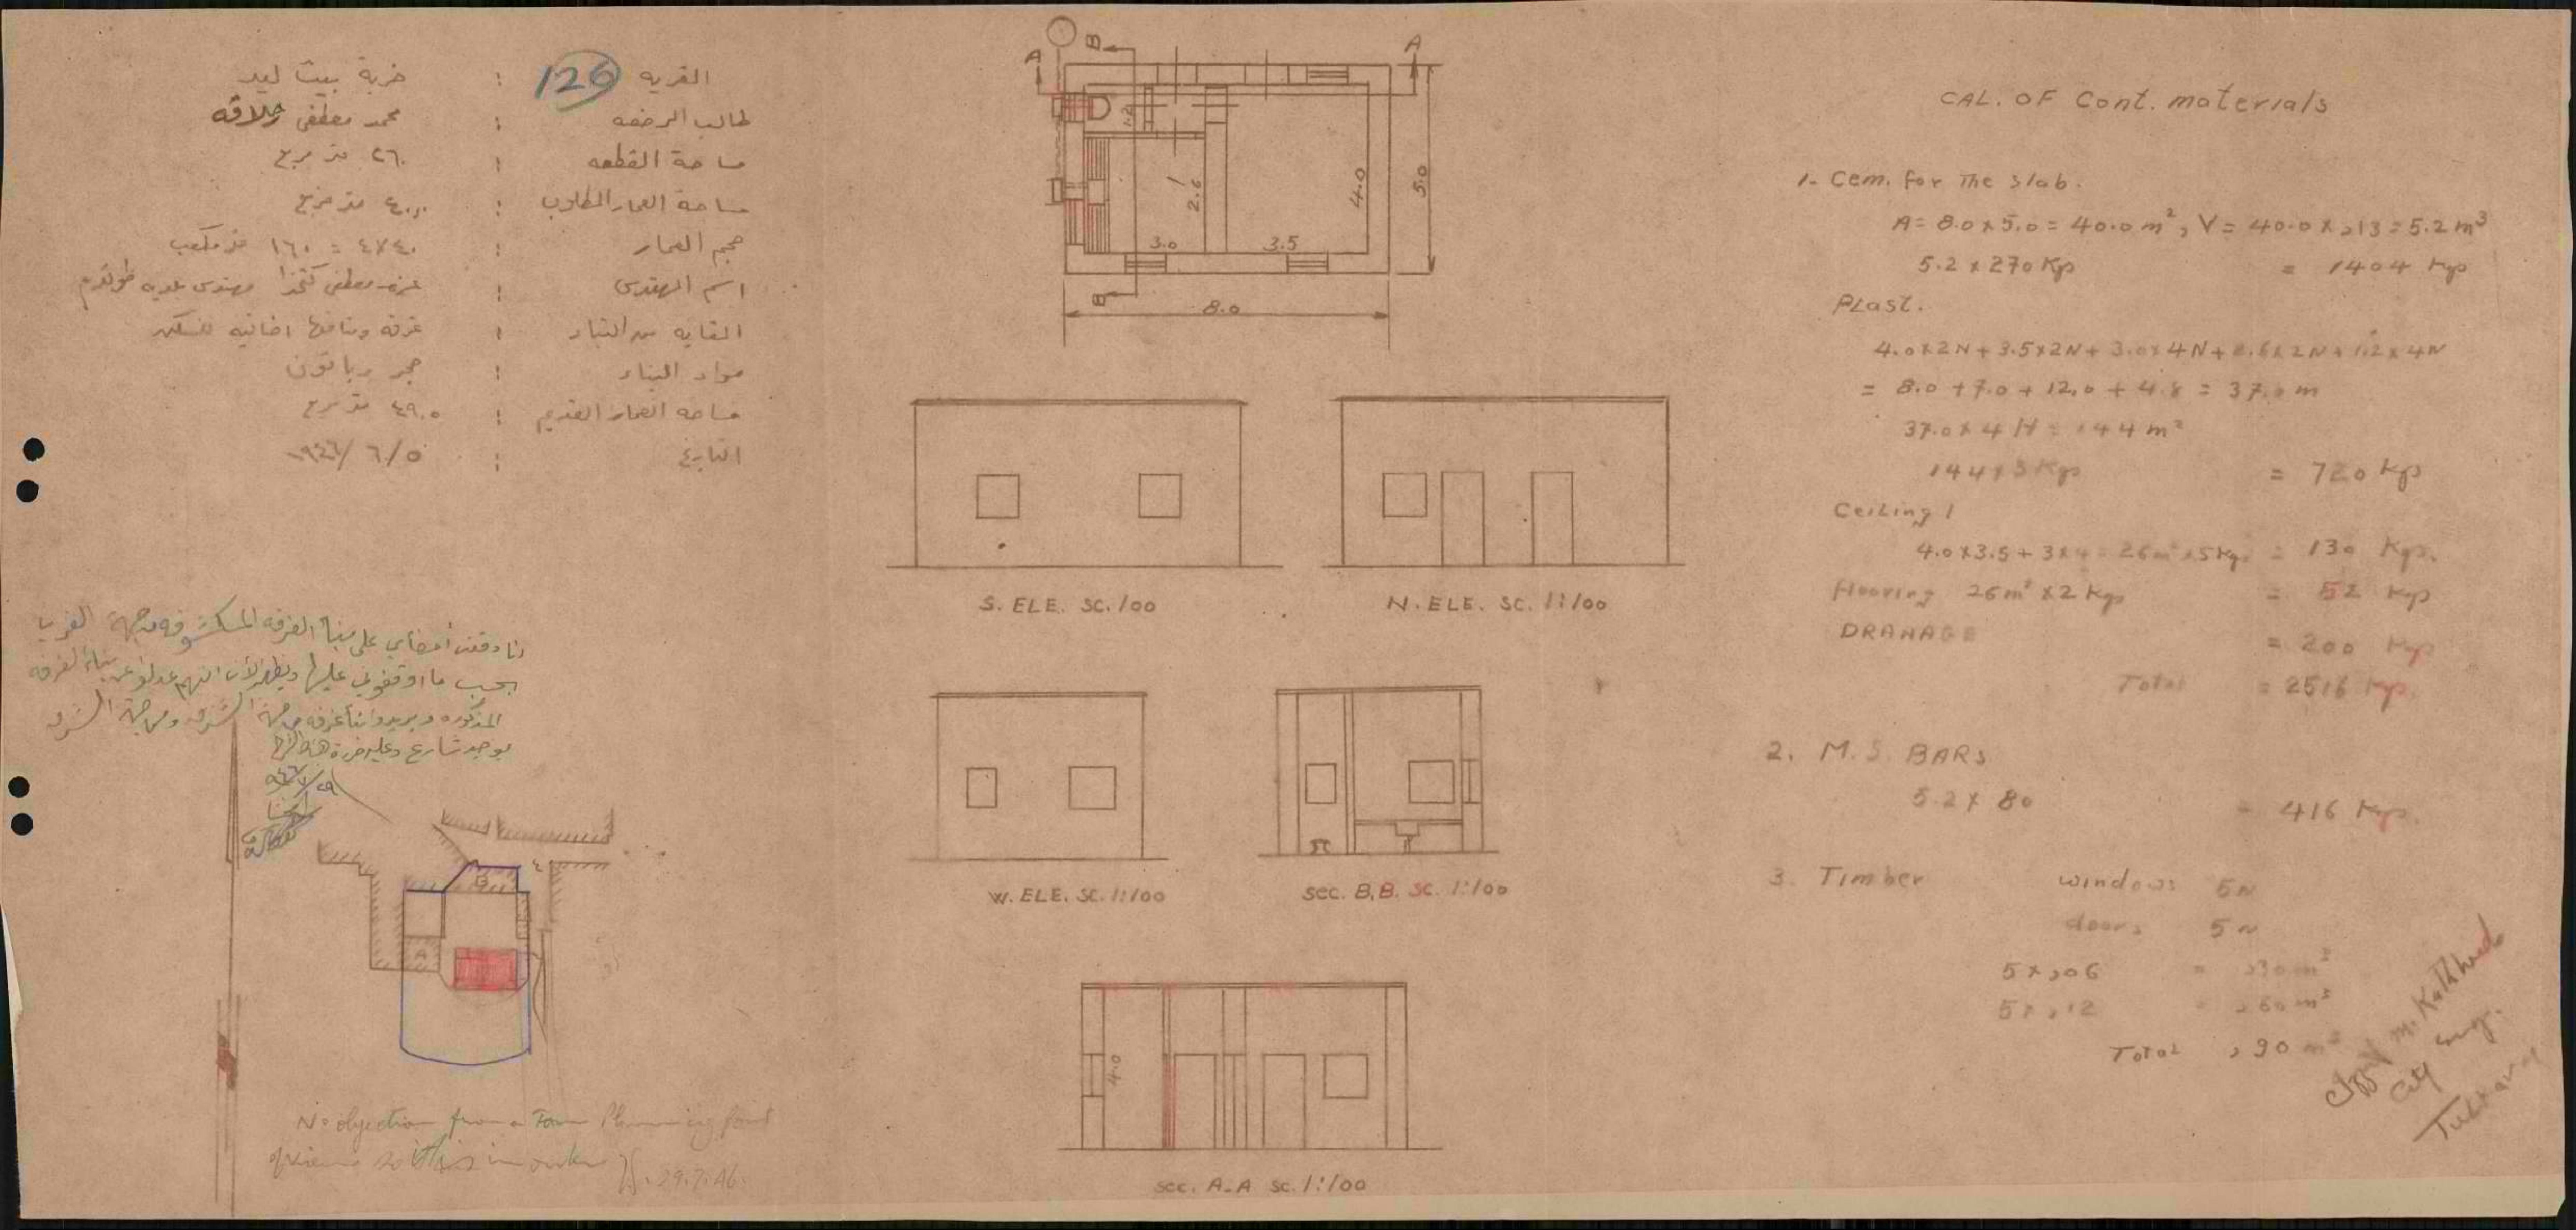 القريه : خربة بيت ليد
126
طالب الرخصه : محمد مصطفى
مساحة القطعه : ٢٦٠ متر مربع
مساحة العمار المطلوب : ٤٠،٠ متر مربع
حجم العمار : ٤٠×٤ = ١٦٠ متر مكعب
اسم المهندس : مصطفى كتخدا مهندس بلديه طولكرم
الغايه من البناء : غرفه ومنافعها اضافيه للسكن
مواد البناء : حجر وباتون
مساحه العمار القديم : ٤٩،٥ متر مربع
التاريخ : ٥/٦/
انا وقعت أمضاي على بناء الغرفه من جهة الغرب
بحسب ما اوقفوني عليها ويظهر الآن انهم عدلوا عن بناء الغرفه
المذكوره ويريدوا بناء غرفه من جهة الشرق ومن جهة الشرق
يوجد شارع
B
A
No objection from a Town Planning point
of view so is in order
29.7.46.
B
A
A
1.2
1
2.6
4.0
5.0
3.0
3.5
B
8.0
S. ELE. SC. 100
N. ELE. SC. 1:100
W. ELE. SC. 1:100
sec. B,B. SC. 1:100
4.0
sec. A-A SC. 1:100
CAL. OF Cont. materials
1- Cem. for The slab.
A= 8.0 x 5.0 = 40.0 m², V = 40.0 x ,13 = 5.2 m³
5.2 x 270 Kp = 1404 Kp
PLast.
4.0x2N + 3.5x2N + 3.0x4N + 2.6x2N + 1.2x4N
= 8.0 + 7.0 + 12.0 + 4.8 = 37.0 m
37.0 x 4 H = 144 m²
144 x 5 Kp = 720 Kp
Ceiling 1
4.0 x 3.5 + 3x4 = 26 m² x 5 Kg. = 130 Kgs.
flooring 26 m² x 2 Kgs = 52 Kgs
DRANAGE = 200 Kp
Total = 2516 Kp.
2. M.S. BARS
5.2 x 80 = 416 Kgs.
3. Timber windows 5N
doors 5N
5 x ,06 = ,30 m³
5 x ,12 = ,60 m³
Total ,90 m³
M. Katkhuda
City Eng.
Tulkarm